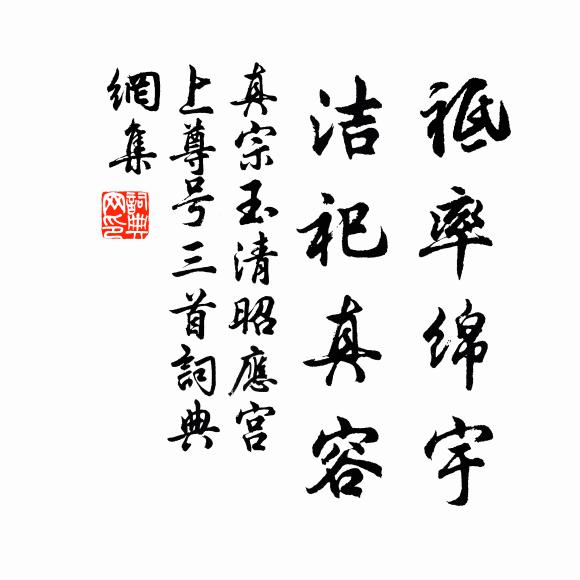 祗率绵宇
洁祀真容
真宗玉清昭應宫
上尊号三首詞典
網集
詞典網印